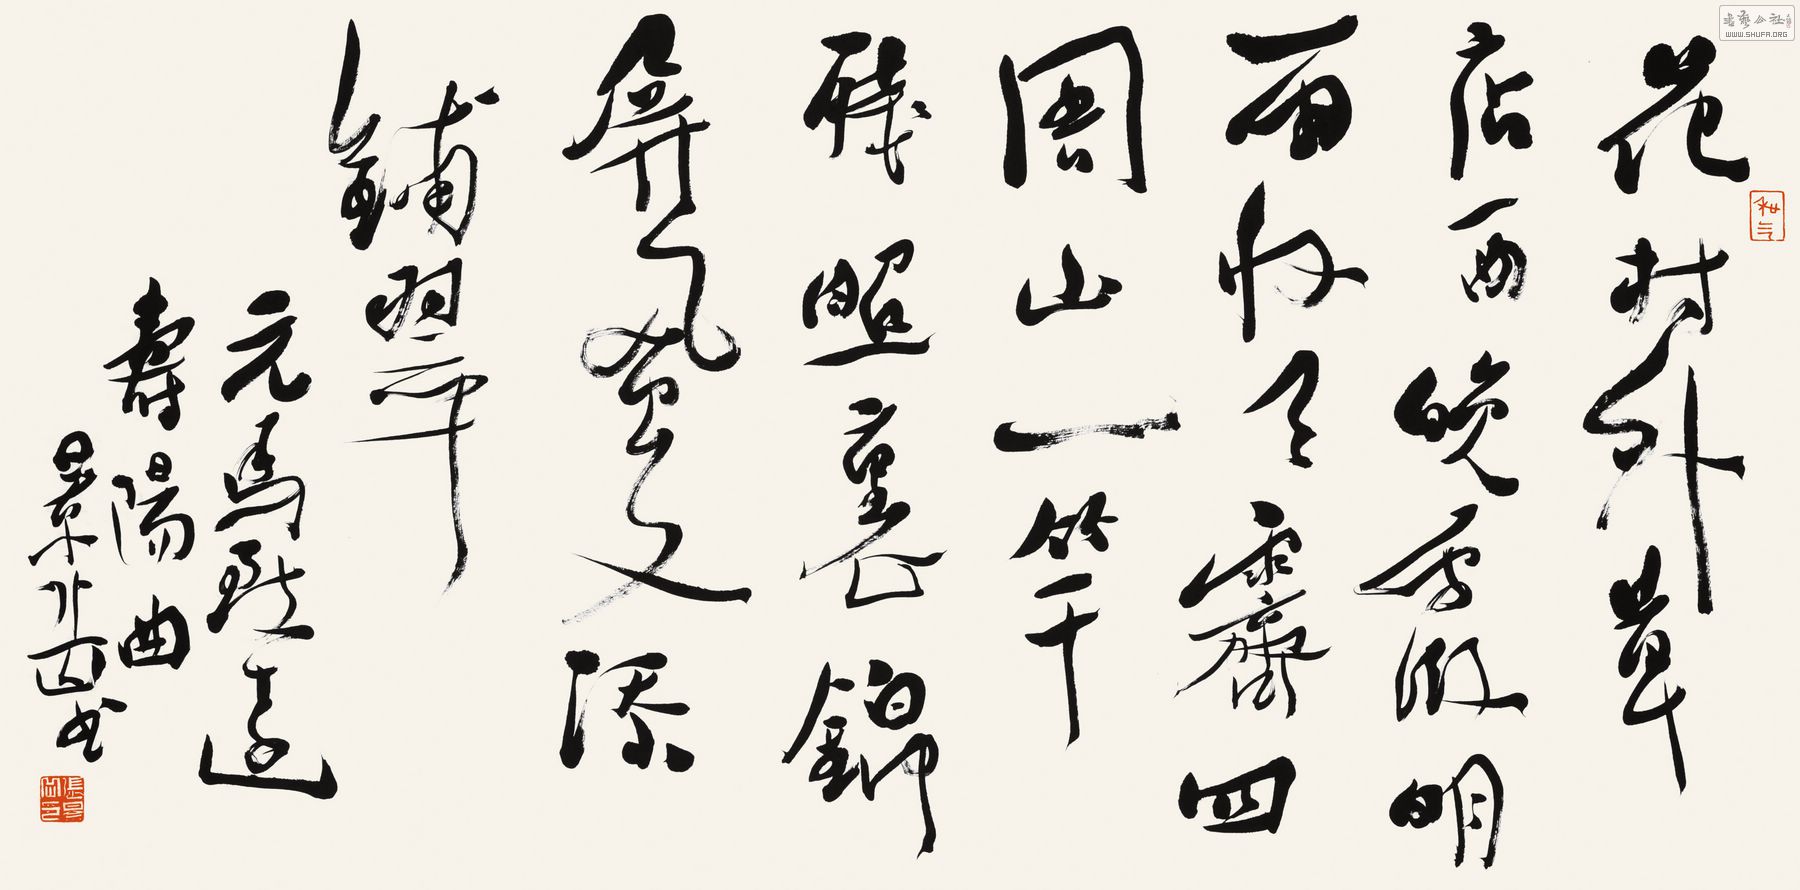 花村外草
店西晚霞明
雨收天霽四
圍山一竿
殘照裏錦
屏風又添
鋪翠
元馬致遠
壽陽曲
景岳书
和气
WWW.SHUFA.ORG